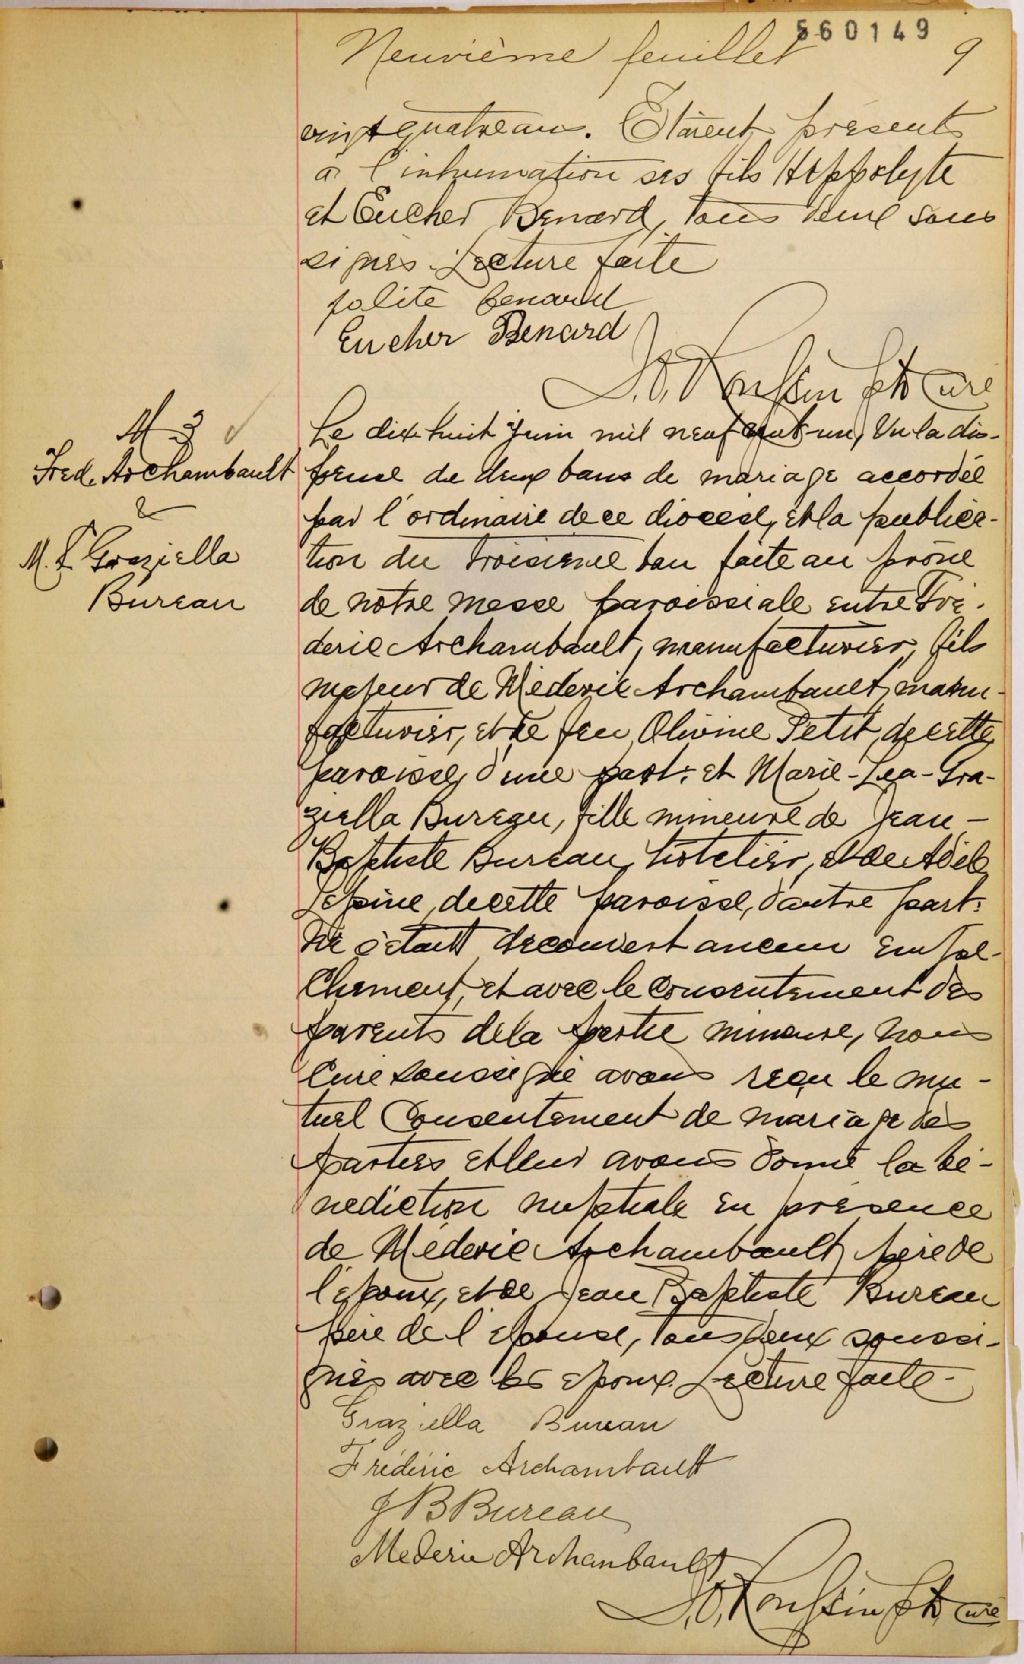 560149
Neuvième feuillet 9
vingt quatre ans. Etaient présents
à l'inhumation ses fils Hippolyte
et Eucher Benard, tous deux sous
signés. Lecture faite
polite benard
Eucher Benard
J.O. Roussin ptr curé
M 3
Fred. Archambault
&
M. L. Graziella
Bureau
Le dix huit Juin mil neuf cent-un, Vu la dis-
pense de deux bans de mariage accordée
par l'ordinaire de ce diocèse, et la publica-
tion du troisième ban faite au prône
de notre messe paroissiale entre Fré-
deric Archambault, manufacturier, fils
majeur de Méderic Archambault, manu-
facturier, et de feu Olivine Petit, de cette
paroisse, d'une part: et Marie-Lea-Gra-
ziella Bureau, fille mineure de Jean-
Baptiste Bureau, hotelier, et de Adèle
Lepine, de cette paroisse, d'autre part:
Ne s'étant découvert aucun empê-
chement, et avec le consentement des
parents de la partie mineure, nous
Curé soussigné avons reçu le mu-
tuel Consentement de mariage des
parties et leur avons donné la bé-
nediction nuptiale en présence
de Méderic Archambault, père de
l'époux, et de Jean Baptiste Bureau
père de l'épouse, tous deux soussi-
gnés avec les époux. Lecture faite-
Graziella Bureau
Frédéric Archambault
J B Bureau
Mederic Archambault
J.O. Roussin ptr curé